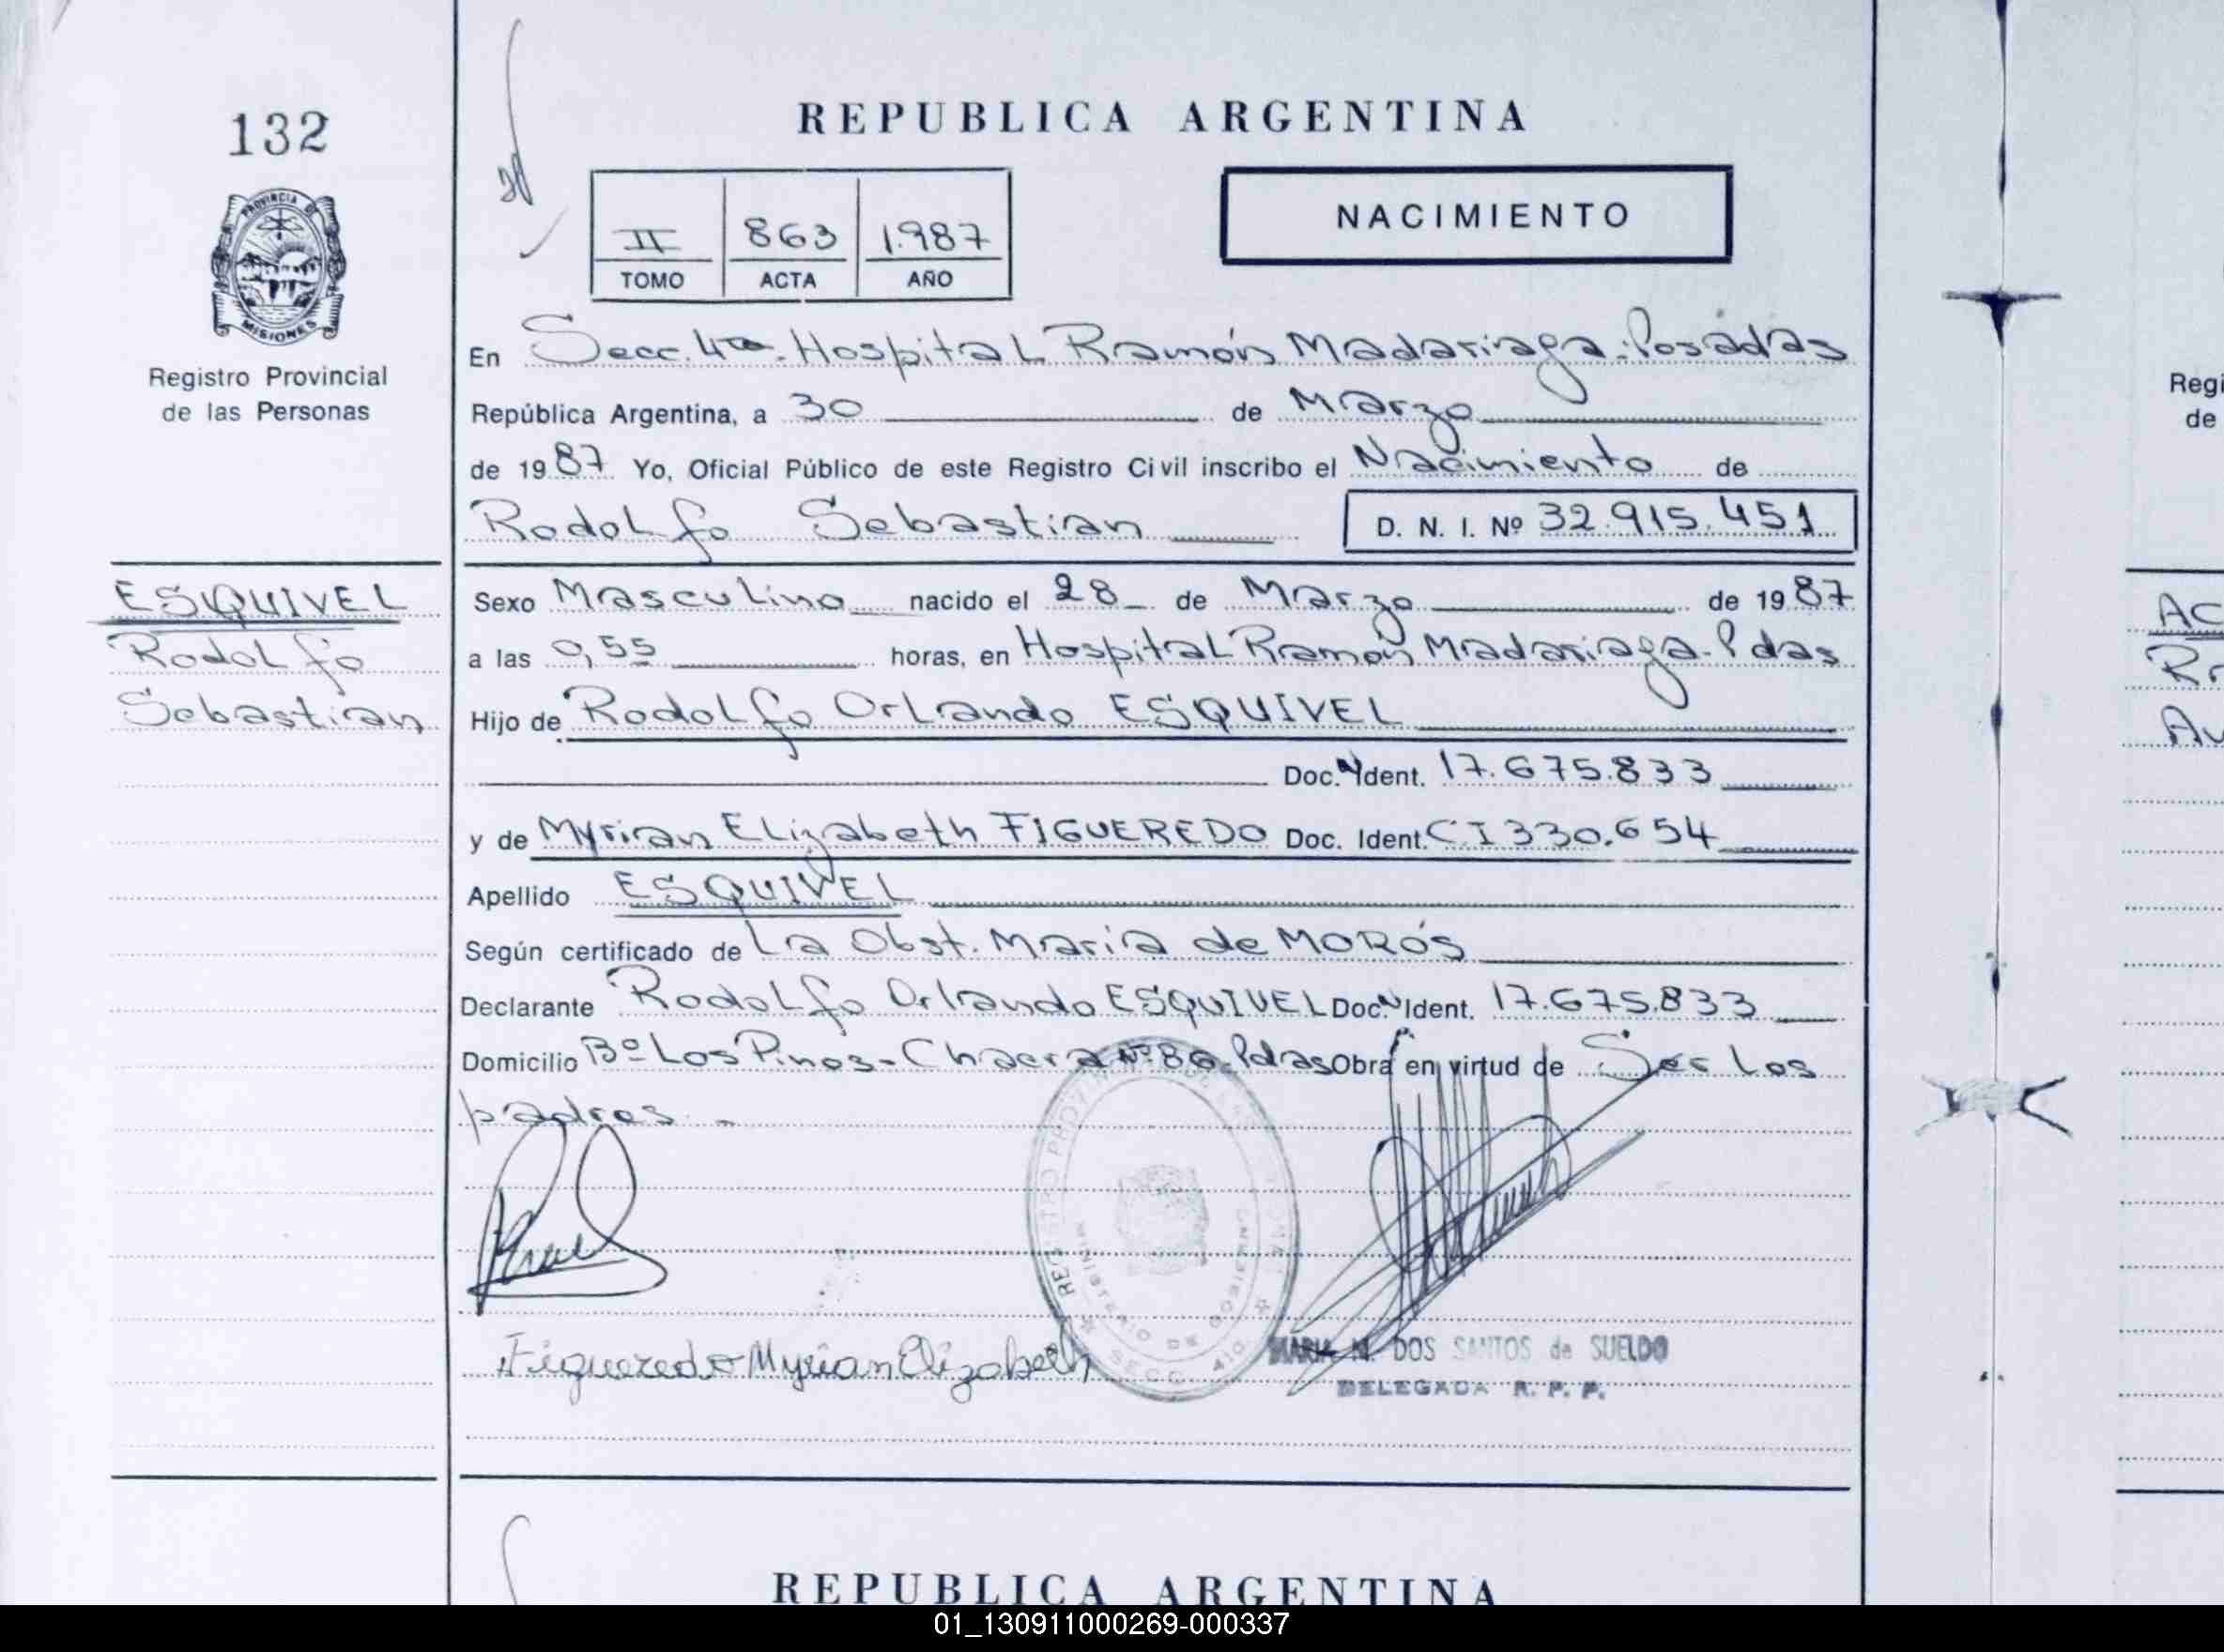 132
PROVINCIA DE
MISIONES
Registro Provincial
de las Personas
ESQUIVEL
Rodolfo
Sebastian
REPUBLICA ARGENTINA
II 863 1.987
TOMO ACTA AÑO
NACIMIENTO
En Secc. 4ta. Hospital Ramón Madariaga. Posadas
República Argentina, a 30 de Marzo
de 1987 Yo, Oficial Público de este Registro Civil inscribo el Nacimiento de
Rodolfo Sebastian D. N. I. Nº 32.915.451
Sexo Masculino nacido el 28 de Marzo de 1987
a las 0,55 horas, en Hospital Ramón Madariaga. Pdas
Hijo de Rodolfo Orlando ESQUIVEL
Doc. N Ident. 17.675.833
y de Myrian Elizabeth FIGUEREDO Doc. Ident. CI 330.654
Apellido ESQUIVEL
Según certificado de La Obst. María de MORÓS
Declarante Rodolfo Orlando ESQUIVEL Doc. N Ident. 17.675.833
Domicilio Bº Los Pinos - Chacra Nº 86. Pdas Obra en virtud de Ser los
padres. -
Figueredo Myrian Elizabeth
MARIA M. DOS SANTOS de SUELDO
DELEGADA R. P. P.
REPUBLICA ARGENTINA
Regi
de
AC
01_130911000269-000337